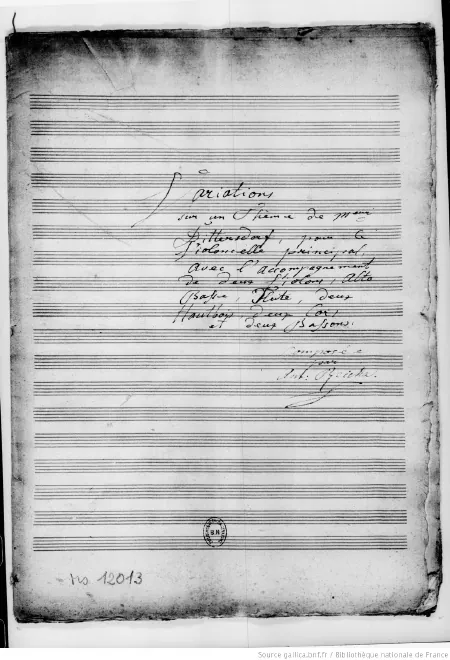 Variations
sur un Thême de
Dittersdorf, pour le
Violoncelle principal,
avec l'accompagnement
de deux Violons, Alto
Basse, Flute, deux
Hautbois, deux Cors,
et deux Bassons.
composé e
par
Ant. Reicha.
B.N
Ms 12013
Source gallica.bnf.fr / Bibliothèque nationale de France